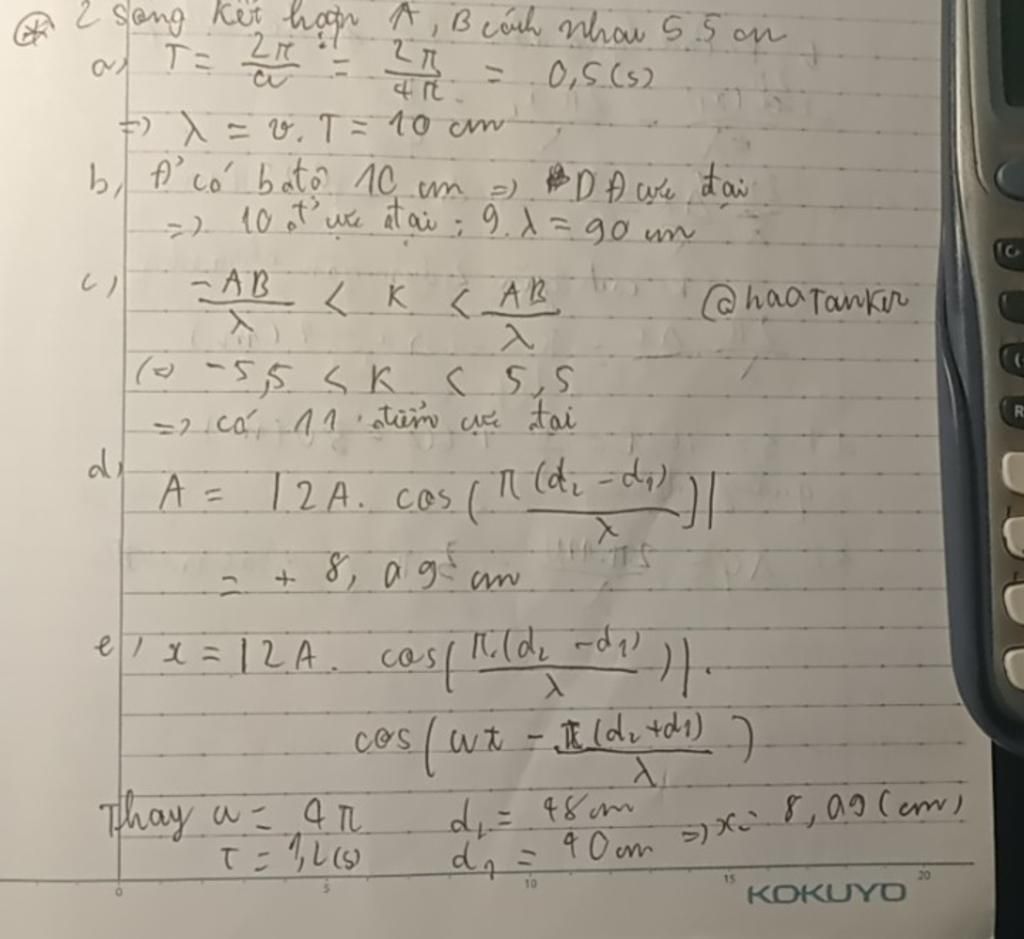 2 sóng kết hợp A, B cách nhau 55 cm
a, T = 2π/ω = 2π/4π = 0,5 (s)
=> λ = v. T = 10 cm
b, 10 cm => cực đại
=> 10 cực đại : 9. λ = 90 cm
c, -AB/λ < K < AB/λ @haaTanker
(=) -5,5 < K < 5,5
=> có 11 điểm cực đại
d, A = |2A. cos(π(d₂ - d₁)/λ)|
= + 8,09 cm
e, x = |2A. cos(π.(d₂ - d₁)/λ)|.
cos(ωt - π(d₂+d₁)/λ)
Thay ω = 4π d₂ = 48 cm => x = 8,09 (cm)
d₁ = 40 cm
0 5 10 15 20
KOKUYO
R